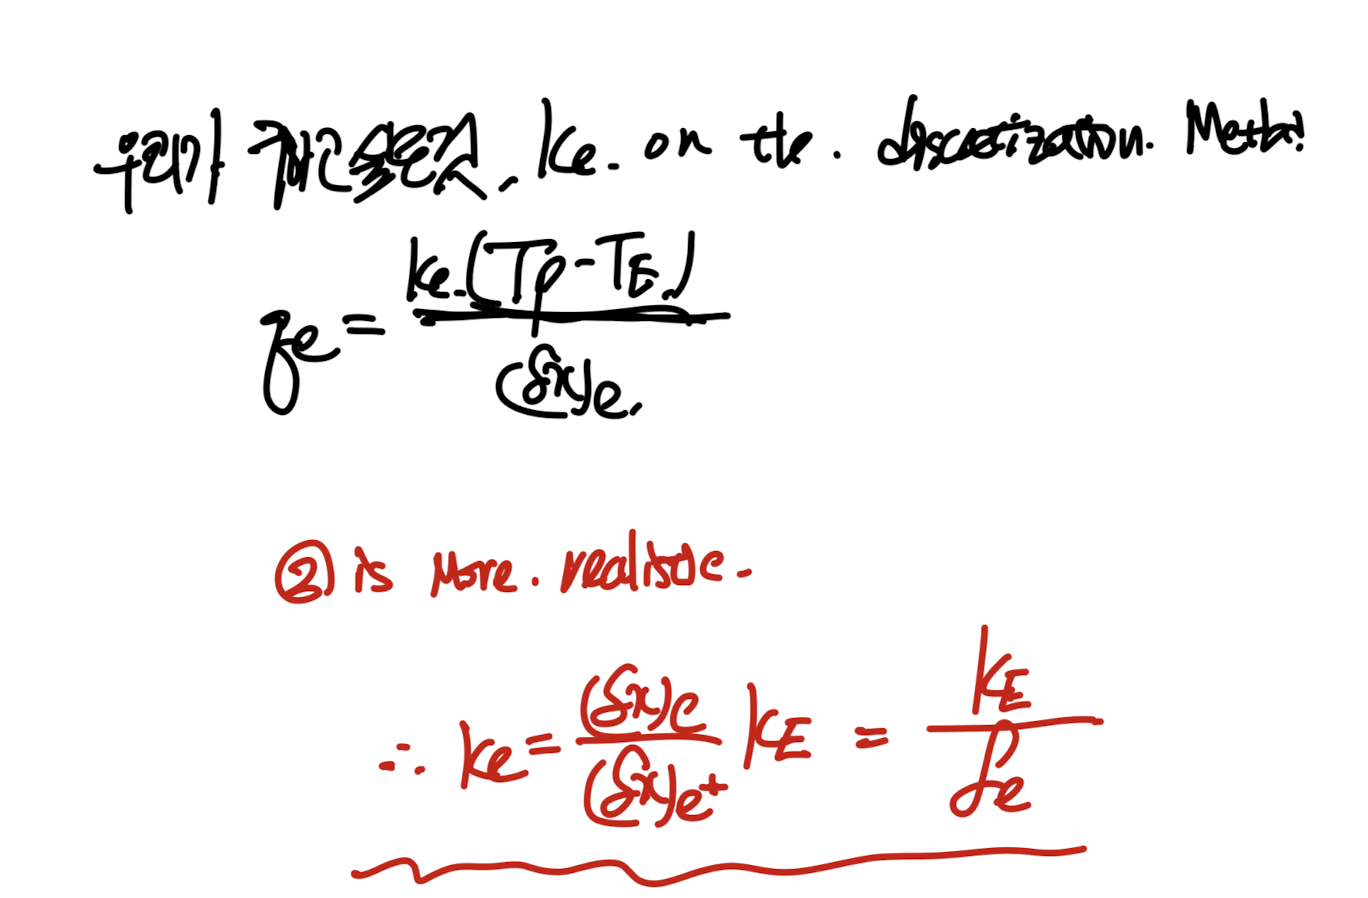 우리가 k_e on the discretization. Method
q_e = k_e(T_P - T_E) / (δx)_e.
② is more. realistic.
∴ k_e = (δx)_e / (δx)_e+ k_E = k_E / f_e